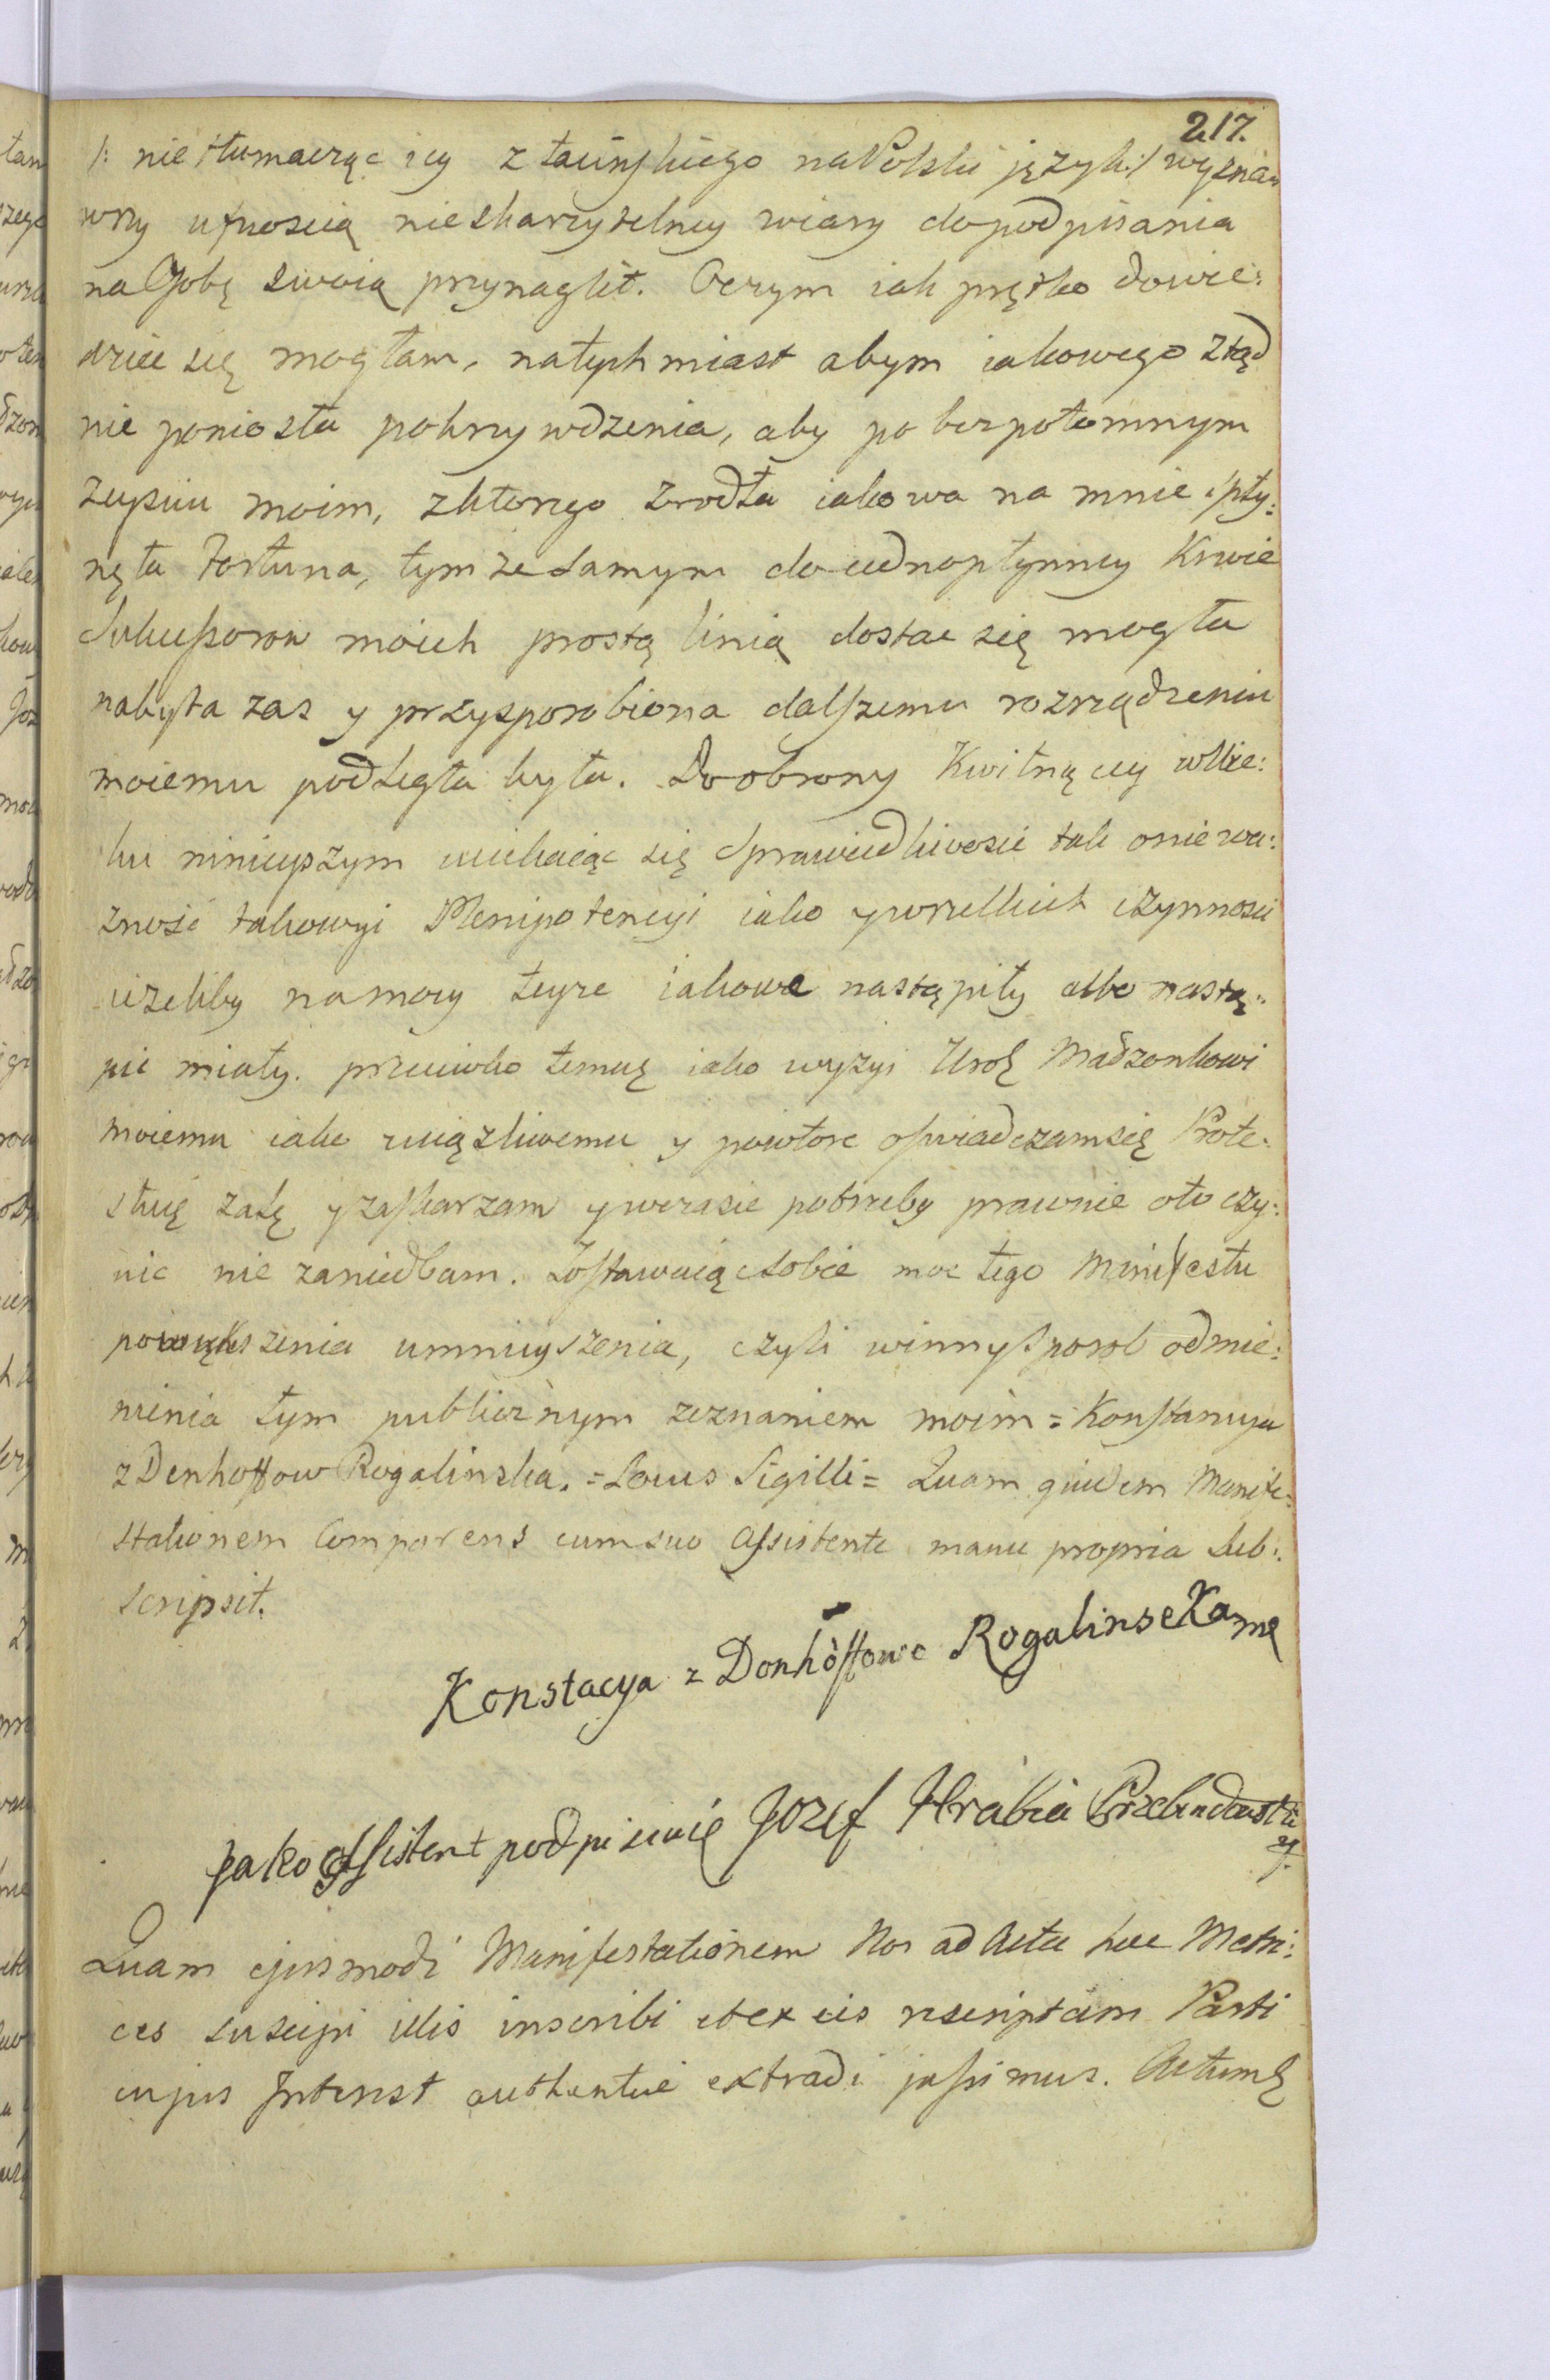 217.
/: nie tłumacząc iey z łacinskiego na Polski język :/ wyznaw
wszy ufnoscią nieskazytelney wiary do podpisania
na Osobę swoią przynaglił. O czym iak prętko dowie:
dziec się mogłam, natychmiast abym iakowego ztąd
nie poniosła pokrzywdzenia, aby po bezpotomnym
zeysciu moim, z ktorego zrodła iakowa na mnie spły:
nęła Fortuna, tymze samym do iednopłynney Krwie
Sukcessorow moich prostą linią dostac się mogła
nabyta zas y przysporobiona dalszemu rozrządzeniu
moiemu podległa była. Do obrony Kwitnącey w Wie:
ku ninieyszym uciekaiąc się Sprawiedliwosci tak o niewa:
znosć takowyi Plenipotencyi iako y wszelkich czynnosci
iezeliby na mocy teyze iakowe nastąpiły albo nastą:
pic miały. przeciwko temuż iako wyzyi Urod Małzonkowi
moiemu iako związkwemu y powtore oswiadczam się Prote:
stuię załę y zaskarzam y w czasie potrzeby prawnie o to czy:
nic nie zaniedbam. Zostawuiąc sobie moc tego Manifestu
powiększenia umnieyszenia, czyli w inny sposob odmie:
nienia tym publicznym zeznaniem moim = Konstancya
z Denhoffow Rogalinska. = Locus Sigilli = Quam quidem Manife:
stationem Comparens cum suo Assistente manu propria Sub:
scripsit.
Konstacya z Donhoffowc Rogalinseka mę
Jako Assistent podpisuię Jozef Hrabia Przebendowski
Quam ejusmodi Manifestationem Nos ad Acta hae Metri:
ces suscipi illis inscribi et ex eis rescriptam Parti
cujus Interest authentice extradi jussimus. Actumq